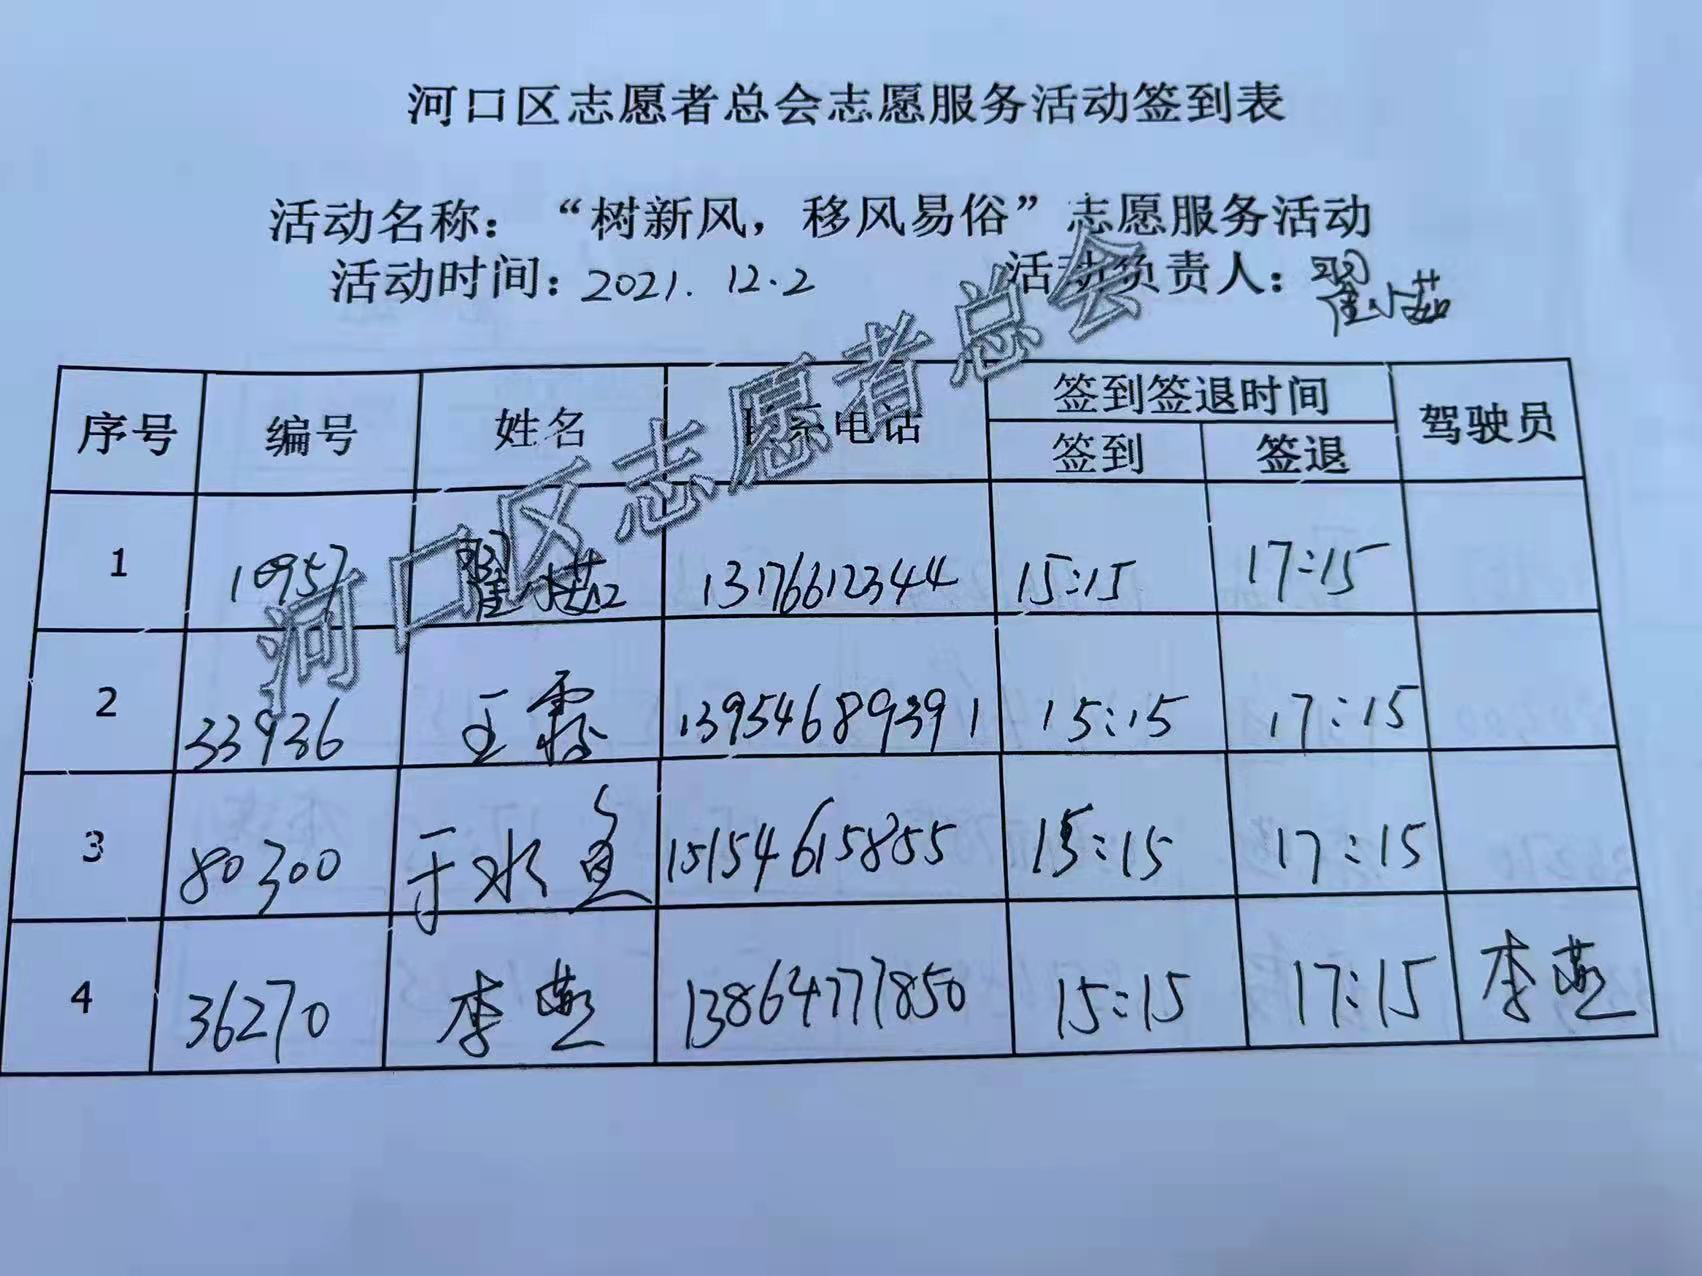 河口区志愿者总会志愿服务活动签到表
活动名称：“树新风，移风易俗”志愿服务活动
活动时间：2021.12.2 活动负责人：翟小茹
序号 编号 姓名 联系电话 签到签退时间 驾驶员
签到 签退
1 10957 翟小茹 13176612344 15:15 17:15
2 33936 王霞 13954689391 15:15 17:15
3 80300 于水鱼 15154615855 15:15 17:15
4 36270 李燕 13864777850 15:15 17:15 李燕
河口区志愿者总会